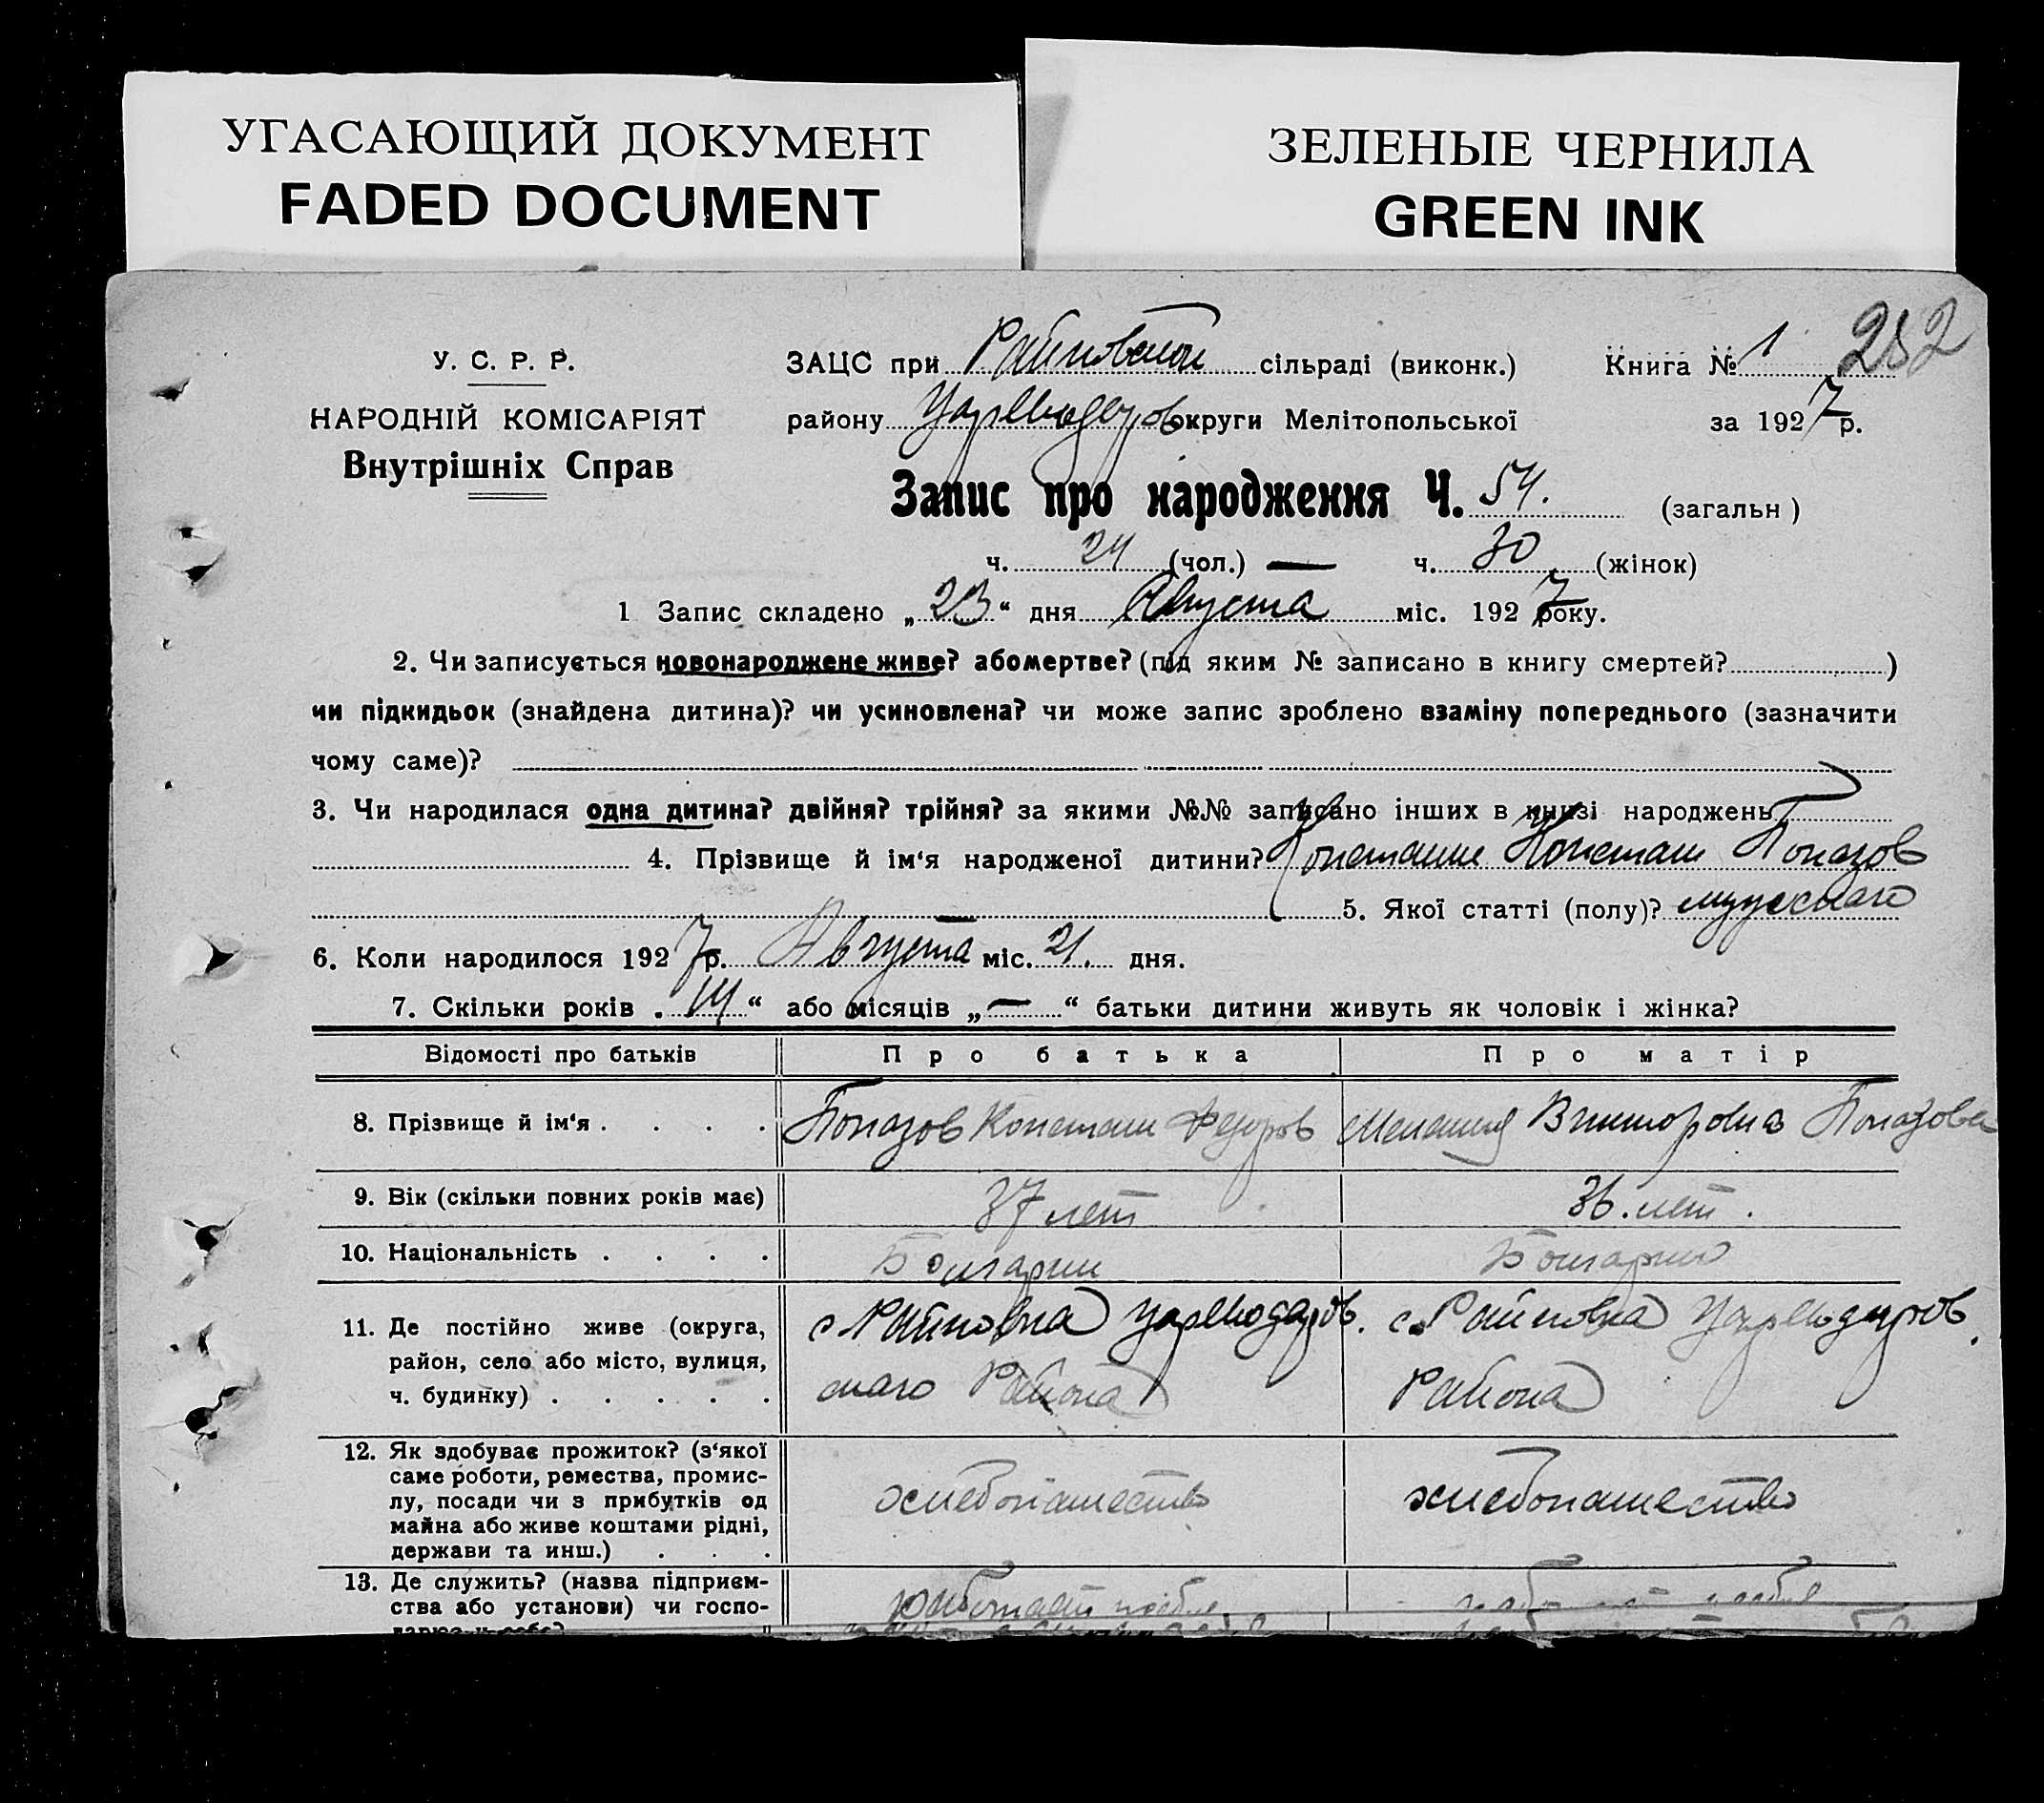 УГАСАЮЩИЙ ДОКУМЕНТ
FADED DOCUMENT
ЗЕЛЕНЫЕ ЧЕРНИЛА
GREEN INK
У. С. Р. Р.
НАРОДНІЙ КОМІСАРІЯТ
Внутрішніх Справ
ЗАЦС при Райновской сільраді (виконк.) Книга № 1 282
району Цареводаров округи Мелітопольської за 1927 р.
Запис про народження Ч. 54. (загальн)
ч. 24 (чол.) — ч. 30 (жінок)
1 Запис складено „23“ дня Августа міс. 1927 року.
2. Чи записується новонароджене живе? або мертве? (під яким № записано в книгу смертей? )
чи підкидьок (знайдена дитина)? чи усиновлена? чи може запис зроблено взаміну попереднього (зазначити
чому саме)?
3. Чи народилася одна дитина? двійня? трійня? за якими №№ записано інших в книзі народжень
4. Прізвище й ім‘я народженої дитини? Констанин Констан Попазов
5. Якої статті (полу)? мужскаго
6. Коли народилося 1927 р. Августа міс. 21. дня.
7. Скільки років „14“ або місяців „—“ батьки дитини живуть як чоловік і жінка?
Відомості про батьків Про батька Про матір
8. Прізвище й ім‘я . . . . Попазов Констан Федоров Мелания Викторовна Попазова
9. Вік (скільки повних років має) 37 лет 36. лет.
10. Національність . . . . Болгарин Болгарин
11. Де постійно живе (округа, с Райновка Цареводаров. с. Райновка Цареводаров.
район, село або місто, вулиця,
ч. будинку) . . . . . скаго Района Района
12. Як здобуває прожиток? (з‘якої
саме роботи, ремества, промис-
лу, посади чи з прибутків од хлебопашество хлебопашество
майна або живе коштами рідні,
держави та инш.) . . .
13. Де служить? (назва підприєм-
ства або установи) чи госпо- работает